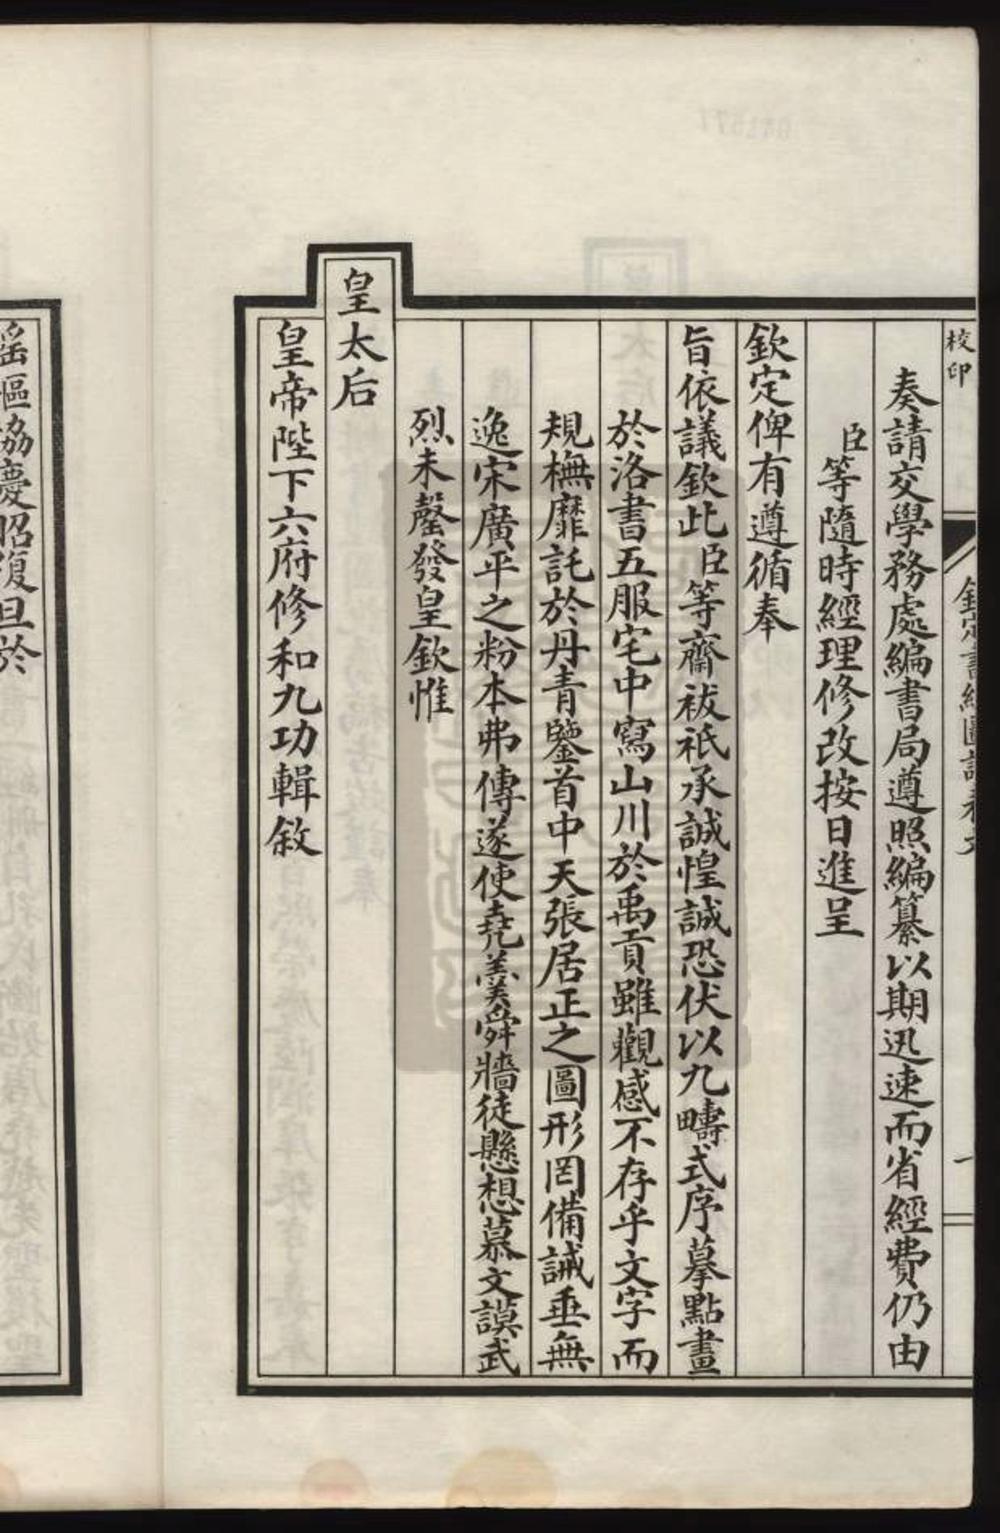 校印
欽定書經圖說
奏請交學務處編書局遵照編纂以期迅速而省經費仍由
臣等隨時經理修改按日進呈
欽定俾有遵循奉
旨依議欽此臣等齋祓祇承誠惶誠恐伏以九疇式序摹點畫
於洛書五服宅中寫山川於禹貢雖觀感不存乎文字而
規橅靡託於丹青鑒首中天張居正之圖形罔備誡垂無
逸宋廣平之粉本弗傳遂使堯羹舜牆徒懸想慕文謨武
烈未罄發皇欽惟
皇太后
皇帝陛下六府修和九功輯敘
瑤樞協慶昭復旦於